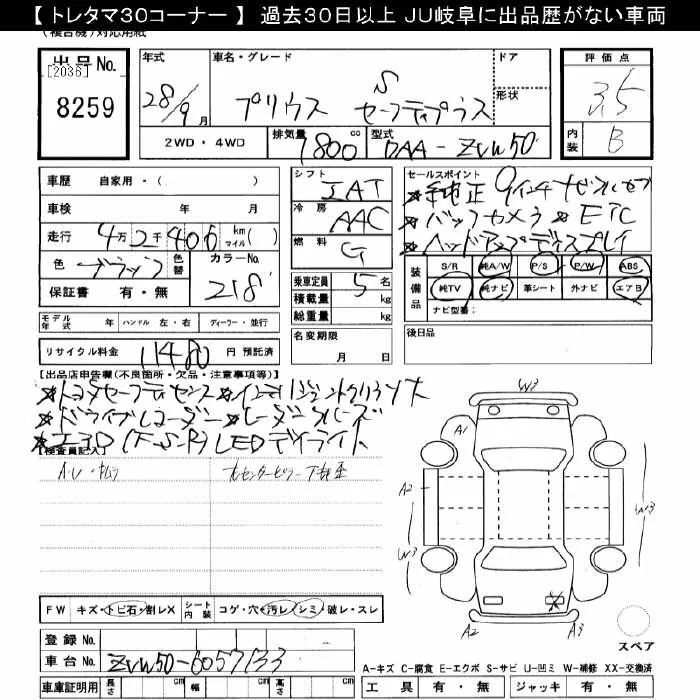 【 トレタマ30コーナー 】 過去30日以上 JU岐阜に出品歴がない車両
(複合機)対応用紙
出品No.
[2036]
8259
年式
28/9月
車名・グレード
プリウス S セーフティプラス
ドア
形状
評価点
3.5
内装 B
2WD・4WD
排気量 1800 cc
型式 DAA-ZVW50
車歴 自家用・( )
車検 年 月
走行 4万2千406 km マイル( )
色 ブラック
色替
カラーNo. 218
保証書 有・無
シフト IAT
冷房 AAC
燃料 G
乗車定員 5名
積載量 kg
総重量 kg
セールスポイント
★純正9インチナビフルセグ
★バックカメラ ★ETC
★ヘッドアップディスプレイ
装備品
S/R 純A/W P/S P/W ABS
純TV 純ナビ 革シート 外ナビ エアB
ナビ型番:
モデル年式 年 ハンドル 左・右 ディーラー・並行
名変期限
月 日
後日品
リサイクル料金 11480 円 預託済
【出品店申告欄(不良箇所・欠品・注意事項等)】
★トヨタセーフティセンス★インテリジェントクリソナ
★ドライブレコーダー★レーダークルーズ
★エアロ(F・S・R) LEDデイライト
【検査員記入】
A・U・キムラ
右センターピラー下板金
W3
A1
A2
W3
W3
A2
A3
FW キズ・トビ石・割レX
シート内装 コゲ・穴・汚レ・シミ・破レ・スレ
登録No.
車台No. ZVW50-6057133
車庫証明用 長さ cm 幅 cm 高さ cm
スペア
A-キズ C-腐食 E-エクボ S-サビ U-凹ミ W-補修 XX-交換済
工具 有・無 ジャッキ 有・無